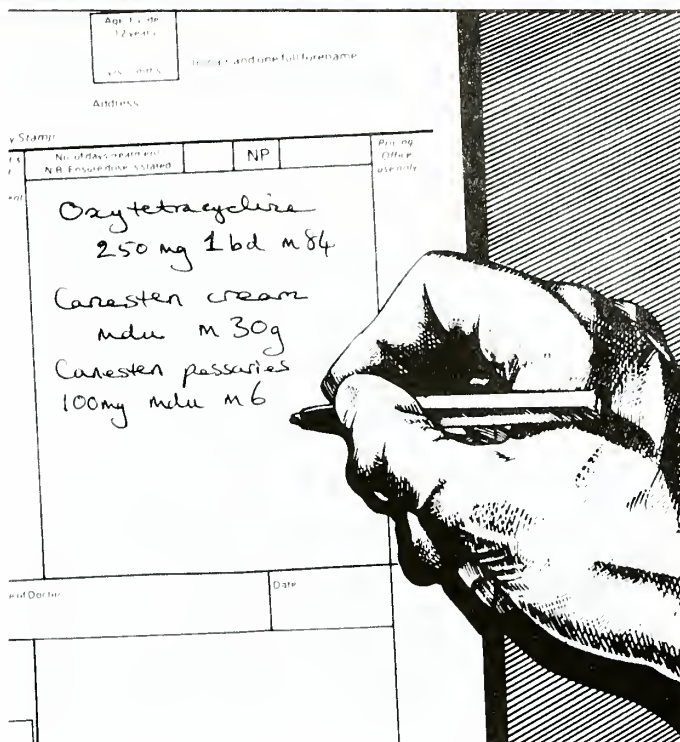 Age if under
12 years
yrs. mths.
Initials and one full forename
Address
y Stamp
No. of days treatment
N.B. Ensure dose is stated
NP
Pricing
Office
use only
Oxytetracycline
250 mg 1 bd m 84
Canesten cream
mdu m 30g
Canesten pessaries
100mg mdu m 6
Doctor
Date